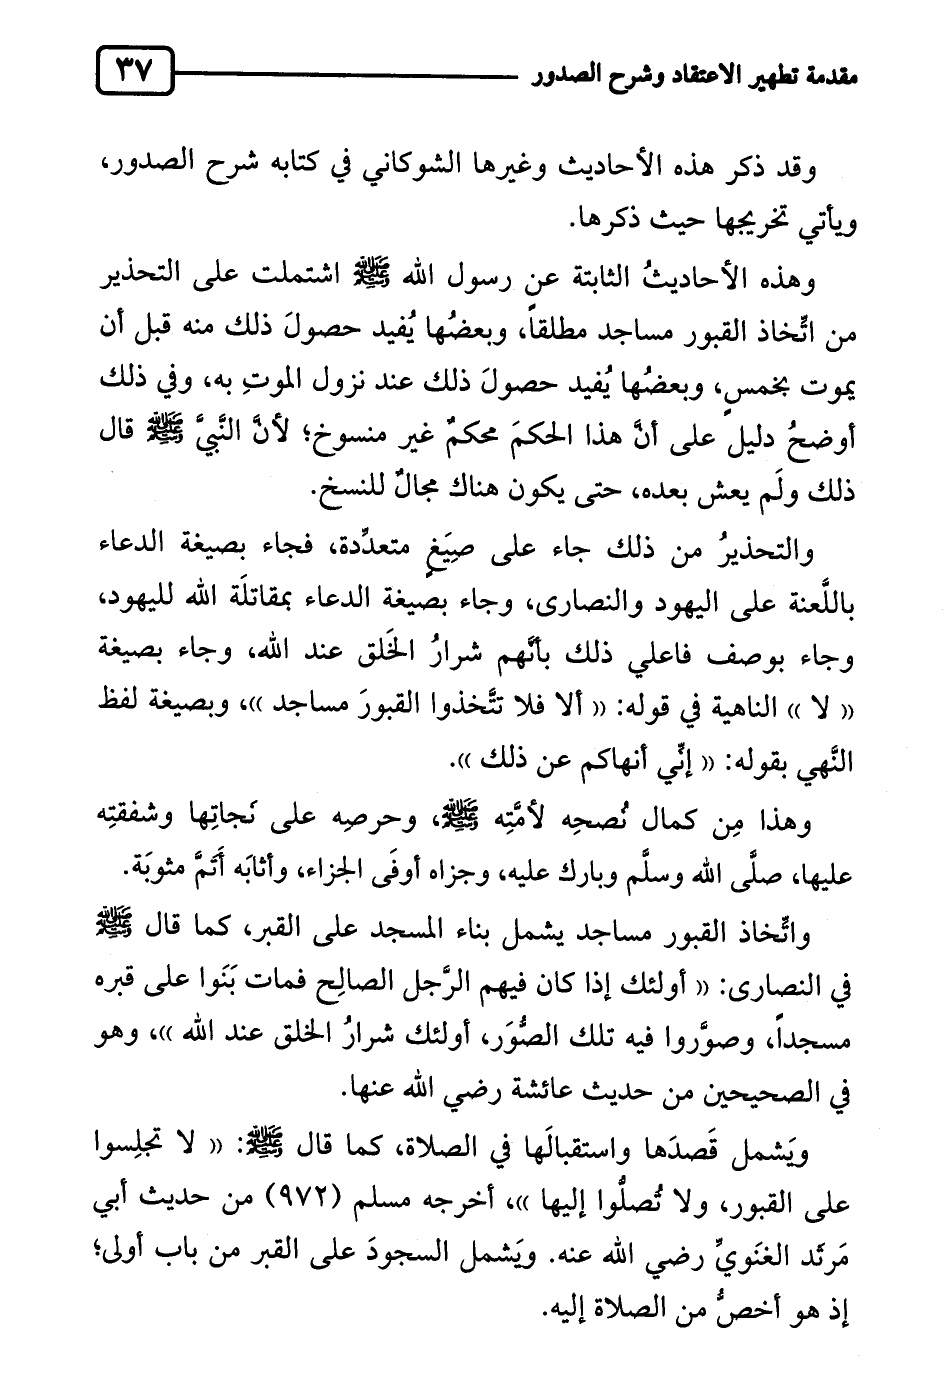 مقدمة تطهير الاعتقاد وشرح الصدور ٣٧
وقد ذكر هذه الأحاديث وغيرها الشوكاني في كتابه شرح الصدور،
ويأتي تخريجها حيث ذكرها.
وهذه الأحاديثُ الثابتة عن رسول الله ﷺ اشتملت على التحذير
من اتِّخاذ القبور مساجد مطلقاً، وبعضُها يُفيد حصولَ ذلك منه قبل أن
يموت بخمسٍ، وبعضُها يُفيد حصولَ ذلك عند نزول الموتِ به، وفي ذلك
أوضحُ دليل على أنَّ هذا الحكمَ محكمٌ غير منسوخ؛ لأنَّ النَّبيَّ ﷺ قال
ذلك ولَم يعش بعده، حتى يكون هناك مجالٌ للنسخ.
والتحذيرُ من ذلك جاء على صِيَغٍ متعدِّدة، فجاء بصيغة الدعاء
باللَّعنة على اليهود والنصارى، وجاء بصيغة الدعاء بمقاتلَة الله لليهود،
وجاء بوصف فاعلي ذلك بأنَّهم شرارُ الخَلق عند الله، وجاء بصيغة
« لا » الناهية في قوله: « ألا فلا تتَّخذوا القبورَ مساجد »، وبصيغة لفظ
النَّهي بقوله: « إنِّي أنهاكم عن ذلك ».
وهذا مِن كمال نُصحِه لأمَّتِه ﷺ، وحرصِه على نَجاتِها وشفقتِه
عليها، صلَّى الله وسلَّم وبارك عليه، وجزاه أوفَى الجزاء، وأثابَه أَتَمَّ مثوبَة.
واتِّخاذ القبور مساجد يشمل بناء المسجد على القبر، كما قال ﷺ
في النصارى: « أولئك إذا كان فيهم الرَّجل الصالِح فمات بَنَوا على قبره
مسجداً، وصوَّروا فيه تلك الصُّوَر، أولئك شرارُ الخلق عند الله »، وهو
في الصحيحين من حديث عائشة رضي الله عنها.
ويَشمل قَصدَها واستقبالَها في الصلاة، كما قال ﷺ: « لا تجلِسوا
على القبور، ولا تُصلُّوا إليها »، أخرجه مسلم (٩٧٢) من حديث أبي
مَرثَد الغنَويِّ رضي الله عنه. ويَشمل السجودَ على القبر من باب أولى؛
إذ هو أخصُّ من الصلاة إليه.